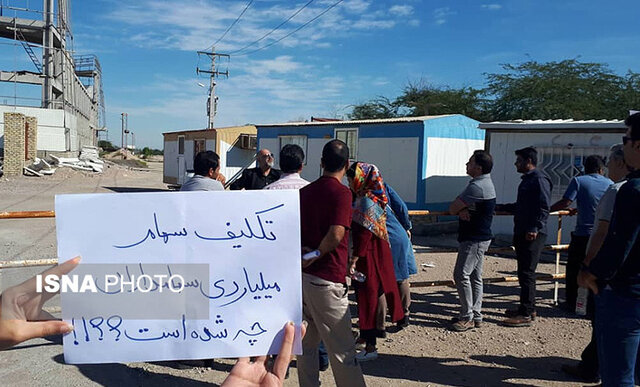 تکلیف سهام
میلیاردی سهامداران
چه شده است؟؟؟!!
ISNA PHOTO